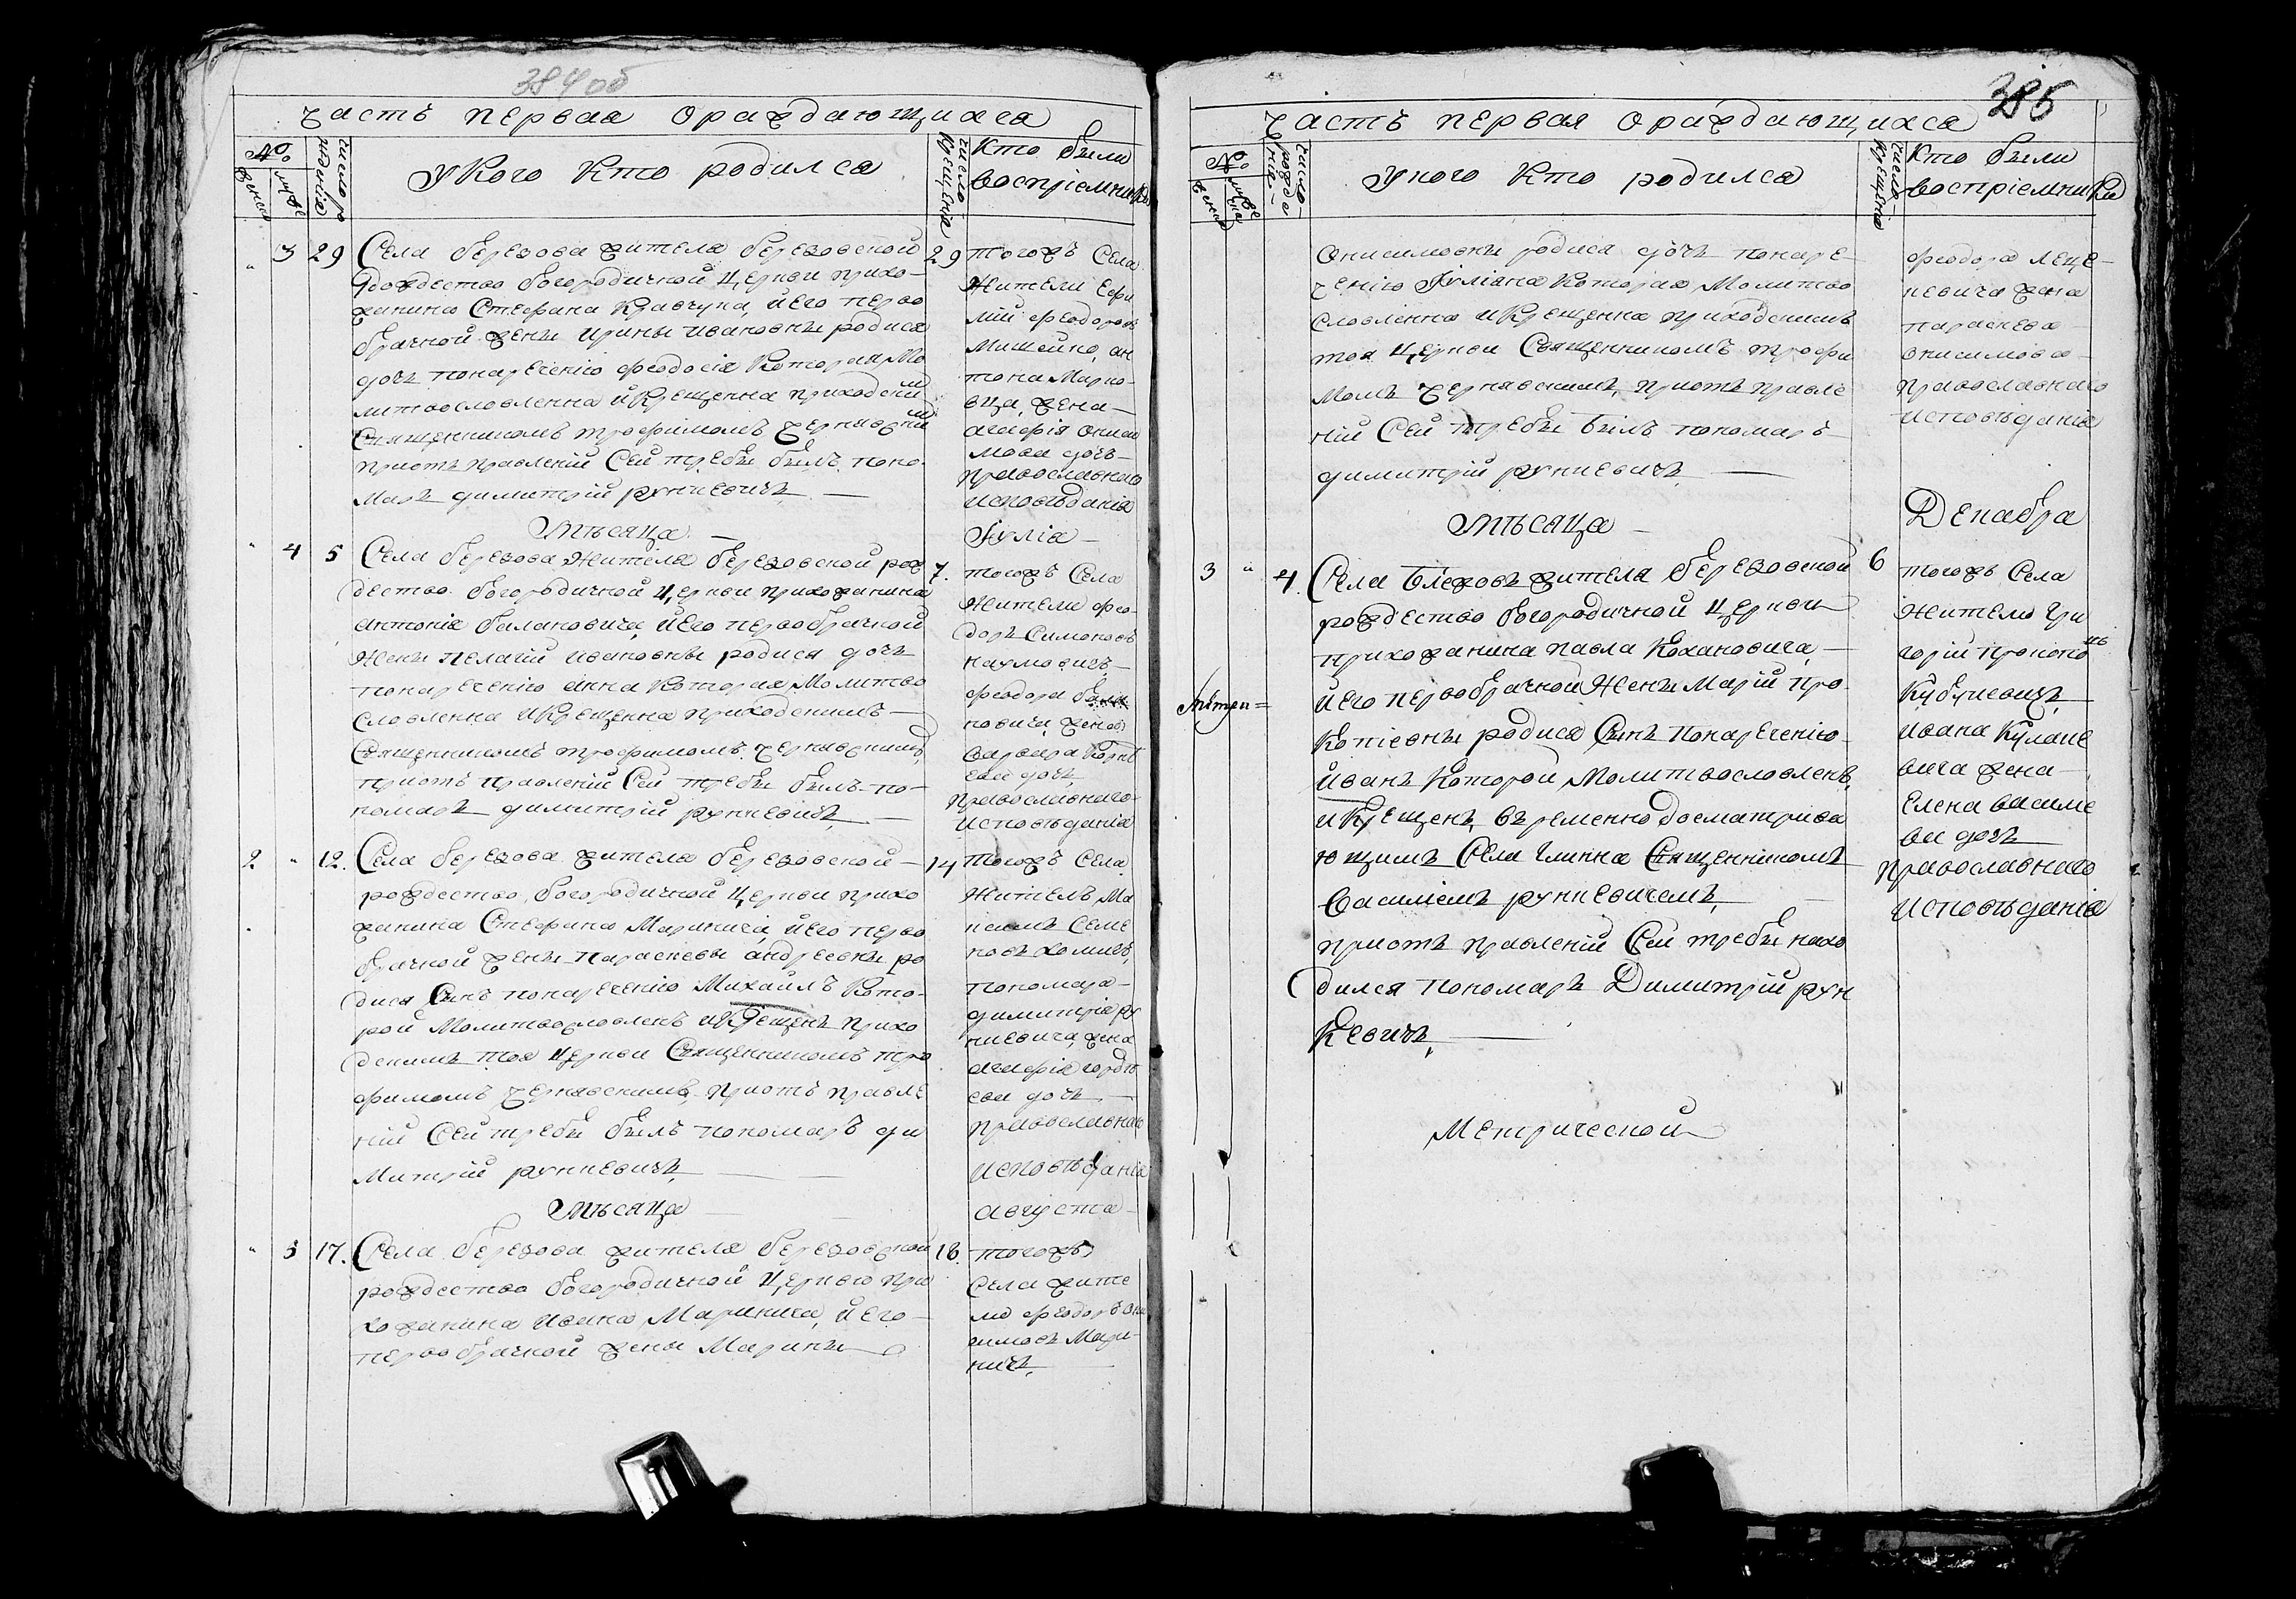 384 об
часть первая ораждающихся
№
числорождениа
Укого Кто родился
число крещениа
Кто были
воспріемники
3 29 Села березова жителя березовской 29
рождество богородичной церкви прихо-
жанина Стефана Кравчука, и его перво
брачной жены Ирины Ивановны родися
дочь понаречению феодосіа Которая Мо
литвословленна и Крещенна приходским
Священникомъ трофимомъ Чернявским
приотъ правленіи Сей требы былъ поно-
марь димитрій рункевичъ —
тогожъ Села
Жители Ефи
мій феодоровъ
Мишейко, ан
тона Марко-
вца, жена —
агафія Ониси
мова дочь —
православнаго
исповѣданіа
Мѣсяца — Іуліа —
4 5 Села березова Жителя березовской рож 7.
дество богородичной церкви прихожанина
антоніа балановича, и его первобрачной
Жены Пелагіи Ивановны родися дочь
понаречению анна Которая Молитво
Словленна и Крещенна приходскимъ —
Священникомъ трофимомъ чернявскимъ,
приотъ правленіи Сей требы былъ по-
номарь димитрій рункевичъ, —
тогожъ Села
Жители фео-
доръ Симоновъ
наумовичъ —
феодора бала
новича, жена
варвара Корнѣ
ева дочь
православнаго
исповѣданіа
2 12. Села березова жителя березовской — 14
рождество богородичной церкви прихо
жанина Стефана Маринича, и его перво
брачной жены Параскевы андреевны ро
дися Сынъ понаречению Михаилъ Кото-
рой Молитвословленъ и Крещенъ прихо
дскимъ тоя церкви Священникомъ тро
фимомъ чернявскимъ, приотъ правле
ніи Сей требы былъ пономаръ ди
митрій рункевичъ,
тогожъ Села
Житель Ма
Семе
новъ хомичъ,
пономара —
димитріа ру
нкевича, жена
агафіа гордѣ
ева дочь —
православнаго
исповѣданіа
Мѣсяца — августа —
5 17. Села березова жителя березовской 18.
рождество богородичной церкви при
хожанина Ивана Маринича, и его —
первобрачной жены Марины
тогожъ
Села жите
ли феодоръ Они
симовъ Мари-
ничъ,
385
часть первая ораждающихся
№
число рожденіа
Укого Кто родился
число крещеніа
Кто были
воспріемники
Онисимовны родися дочь понаре-
чению Іуліана Которая Молитво
Словленна и Крещенна приходскимъ
тоя церкви Священникомъ трофи
момъ чернявскимъ, приотъ правле
ніи Сей требы былъ пономаръ
димитрій рункевичъ —
феодора Леще-
невича жена
параскева —
Онисимова —
православнаго
исповѣданіа
Мѣсяца — Декабра
3 4. Села Блежовъ жителя березовской 6
рождество богородичной церкви
прихожанина павла Кохановича, —
и его первобрачной Жены Маріи Про-
копіевны родися Сынъ понаречению
Иванъ Которой Молитвословленъ,
и Крещенъ, временно досматрива
ющимъ Села Глинна Священникомъ
василіемъ рункевичемъ,
приотъ правленіи Сей требы нахо
дился пономарь Димитрій рун
Кевичъ,
тогожъ Села
Жители Гри
горій прокопо
въ
Кубуневичъ,
Ивана Кулаке
вича жена —
Елена василе
ва дочь
православнаго
исповѣданіа
Метрической